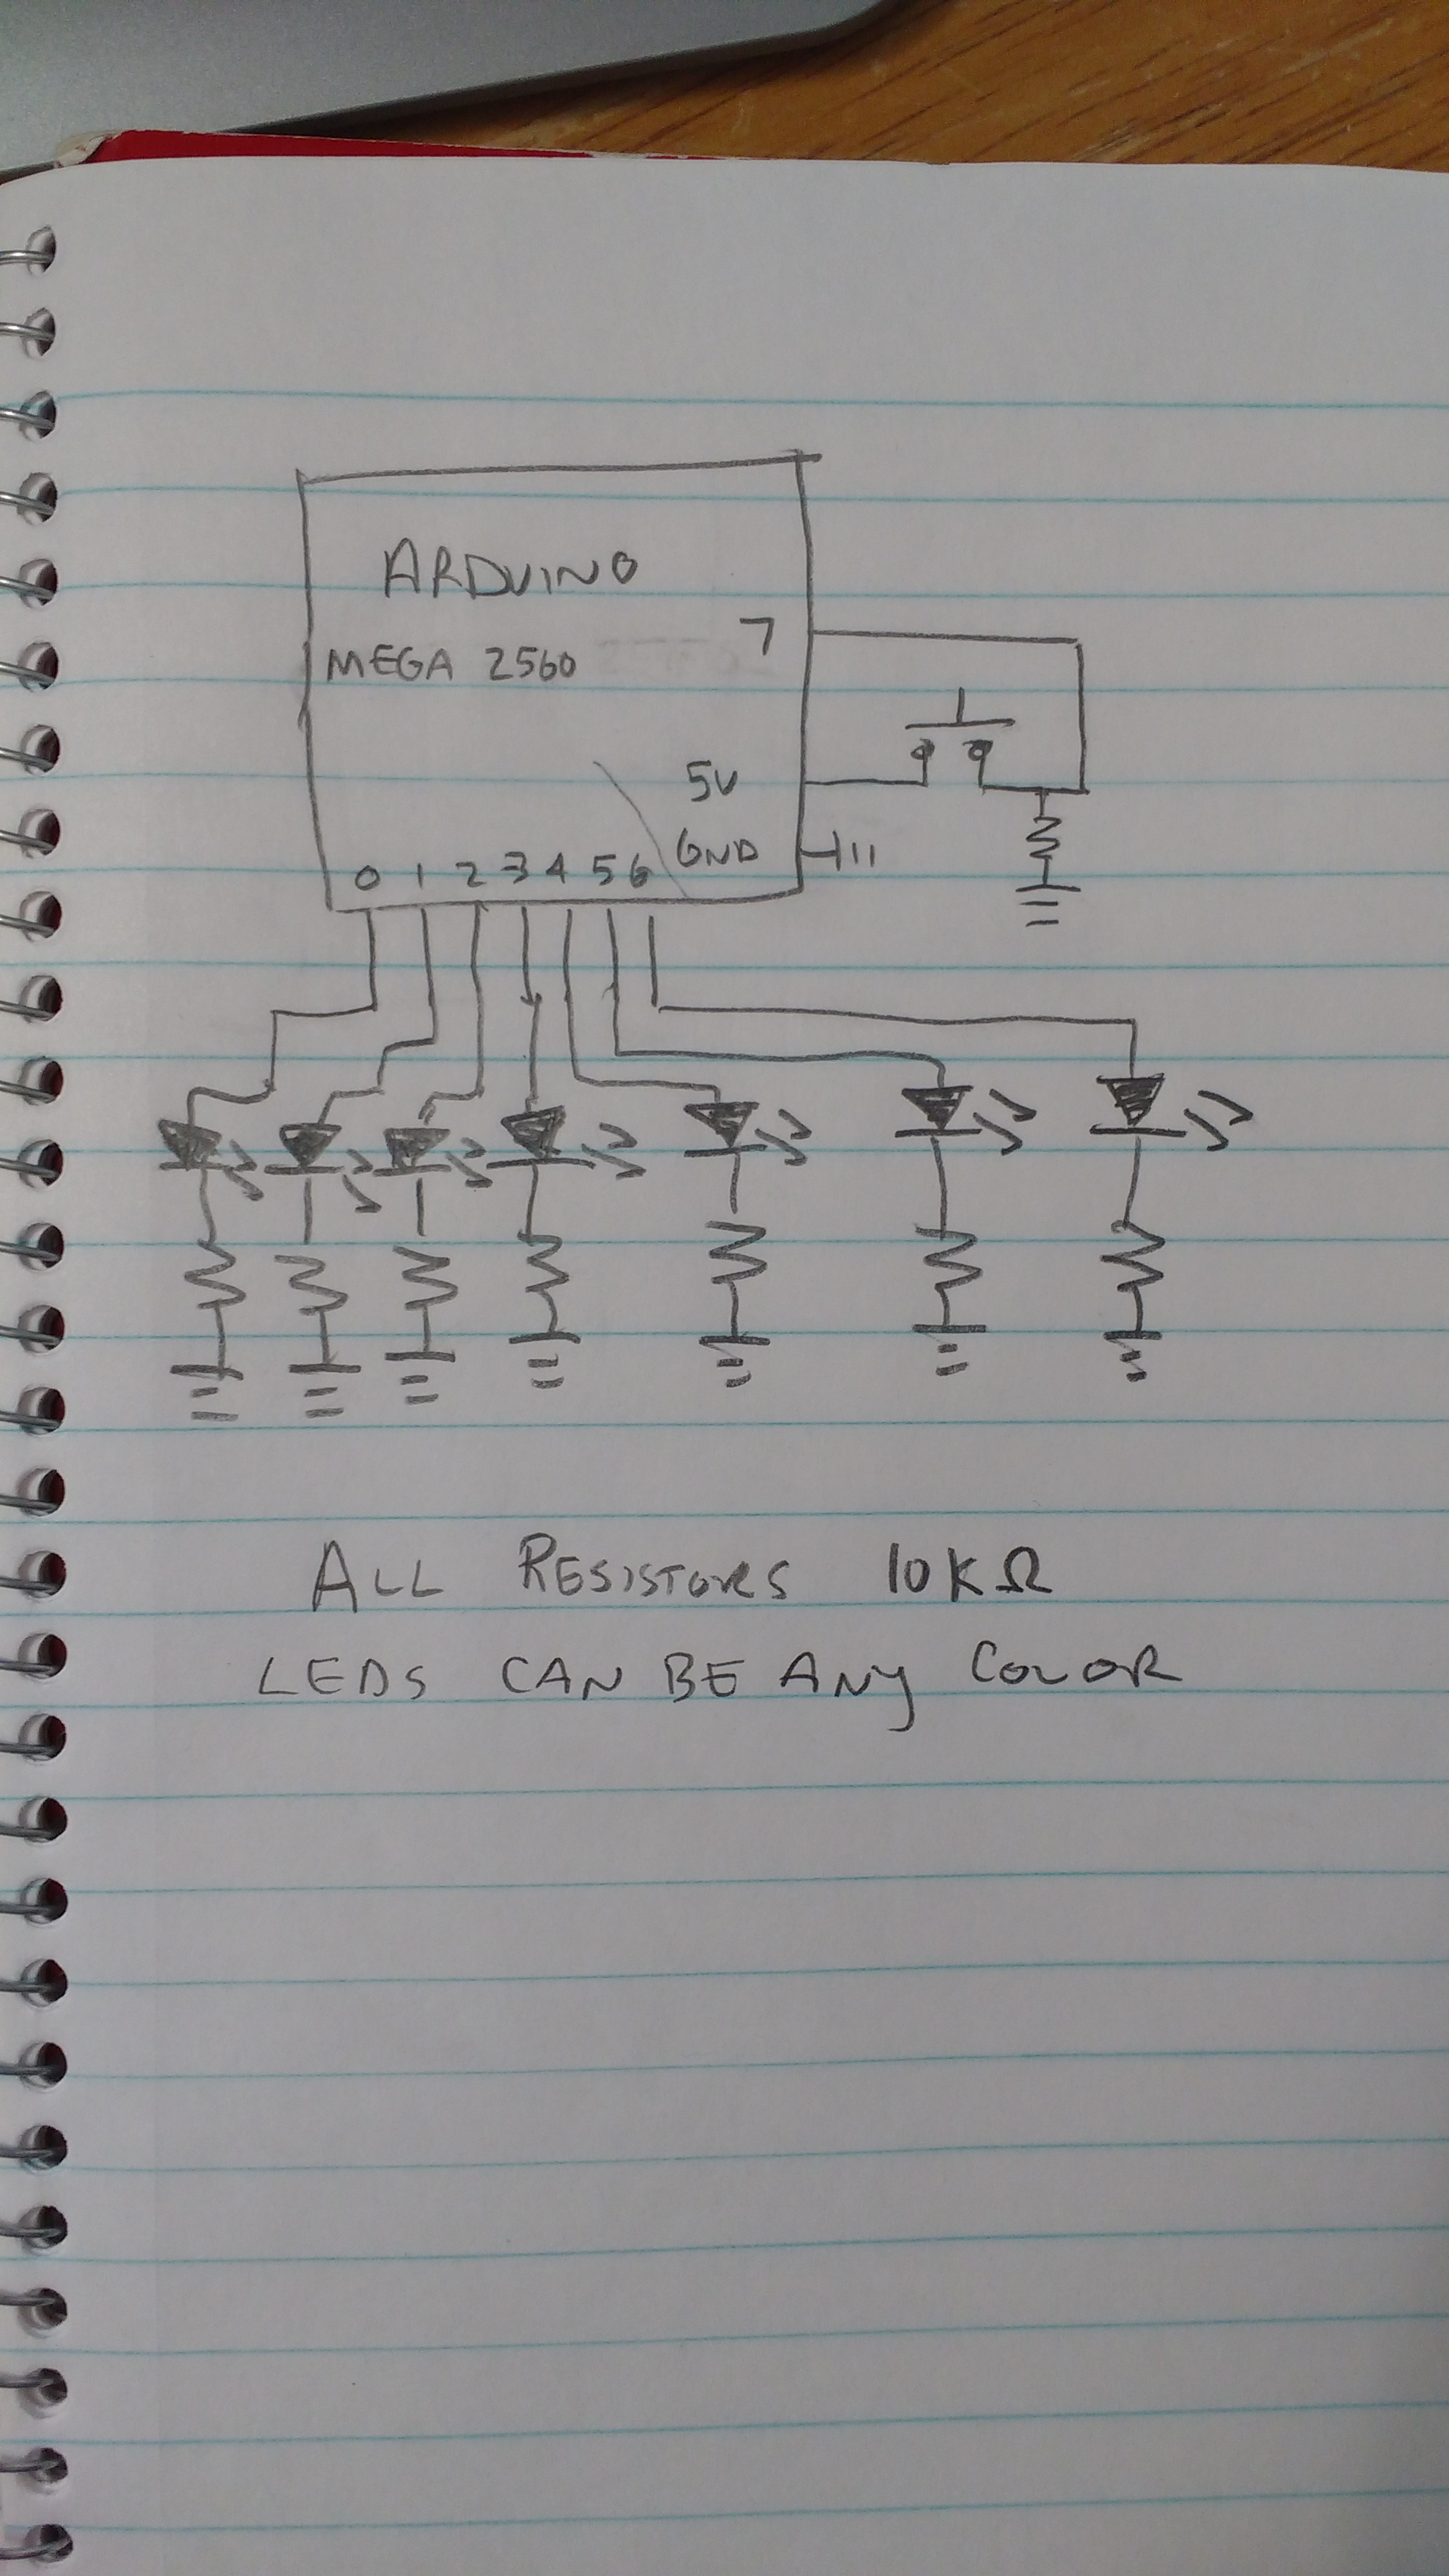 ARDUINO
7
MEGA 2560
5V
GND
0 1 2 3 4 5 6
ALL RESISTORS 10KΩ
LEDS CAN BE ANY COLOR